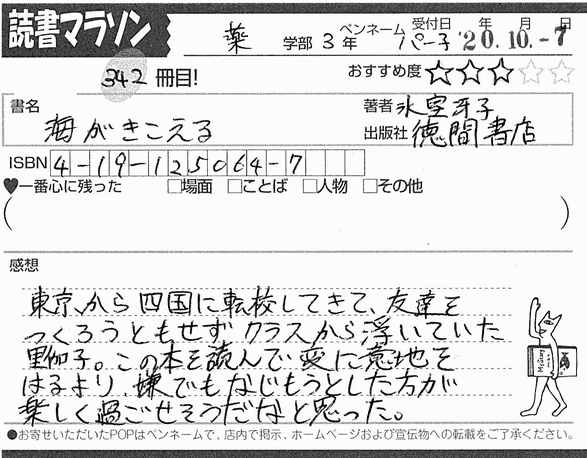 読書マラソン
薬 学部 3 年 ペンネーム パー子 受付日 年 月 日 '20.10.-7
342 冊目! おすすめ度 ★★★☆☆
書名 海がきこえる
著者 氷室冴子
出版社 徳間書店
ISBN 4-19-125064-7
♥一番心に残った □場面 □ことば □人物 □その他
( )
感想
東京から四国に転校してきて、友達を
つくろうともせずクラスから浮いていた
里伽子。この本を読んで変に意地を
はるより、嫌でもなじもうとした方が
楽しく過ごせそうだなと思った。
Mystery
●お寄せいただいたPOPはペンネームで、店内で掲示、ホームページおよび宣伝物への転載をご了承ください。